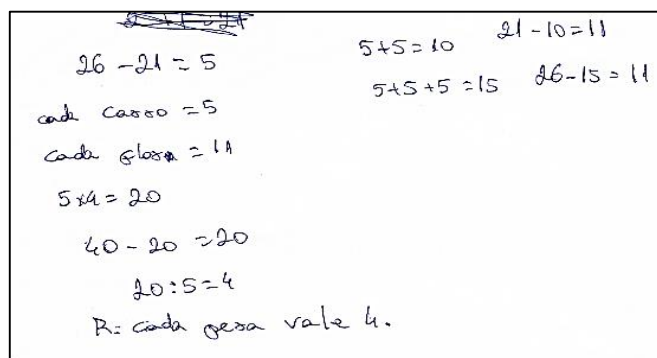 26 - 21 = 5
cada carro = 5
cada = 11
5 x 4 = 20
40 - 20 = 20
20 : 5 = 4
R: cada pera vale 4.
5 + 5 = 10 21 - 10 = 11
5 + 5 + 5 = 15 26 - 15 = 11